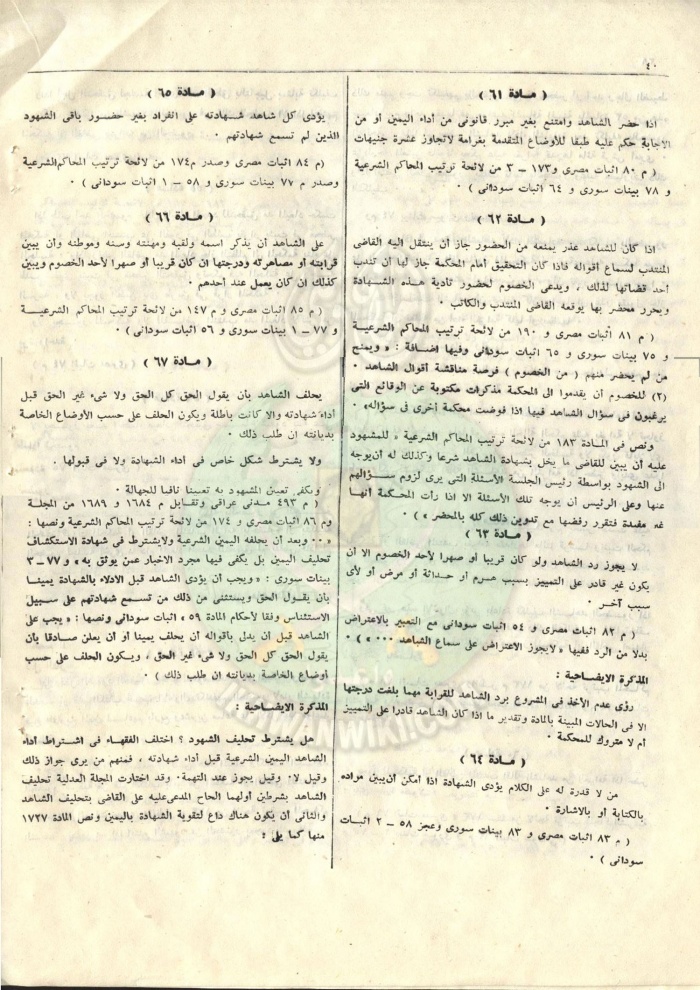 ٤٠
( مادة ٦١ )
اذا حضر الشاهد وامتنع بغير مبرر قانونى من أداء اليمين أو من
الاجابة حكم عليه طبقا للأوضاع المتقدمة بغرامة لاتجاوز عشرة جنيهات
( م ٨٠ اثبات مصرى و١٧٣ – ٣ من لائحة ترتيب المحاكم الشرعية
و ٧٨ بينات سورى و ٦٤ اثبات سودانى ) ٠
( مادة ٦٢ )
اذا كان للشاهد عذر يمنعه من الحضور جاز أن ينتقل اليه القاضى
المنتدب لسماع أقواله فاذا كان التحقيق أمام المحكمة جاز لها أن تندب
أحد قضاتها لذلك ، ويدعى الخصوم لحضور تادية هذه الشهادة
ويحرر محضر بها يوقعه القاضى المنتدب والكاتب ٠
( م ٨١ أثبات مصرى و ١٩٠ من لائحة ترتيب المحاكم الشرعية
و ٧٥ بينات سورى و ٦٥ اثبات سودانى وفيها اضافة : « ويمنح
من لم يحضر منهم ( من الخصوم ) فرصة مناقشة أقوال الشاهد ٠
(٢) للخصوم أن يقدموا الى المحكمة مذكرات مكتوبة عن الوقائع التى
يرغبون فى سؤال الشاهد فيها اذا فوضت محكمة أخرى فى سؤاله» ٠
ونص فى المادة ١٨٣ من لائحة ترتيب المحاكم الشرعية « للمشهود
عليه أن يبين للقاضى ما يخل بشهادة الشاهد شرعا وكذلك له أن يوجه
الى الشهود بواسطة رئيس الجلسة الأسئلة التى يرى لزوم سؤالهم
عنها وعلى الرئيس أن يوجه تلك الأسئلة الا اذا رأت المحكمة أنها
غير مفيدة فتقرر رفضها مع تدوين ذلك كله بالمحضر » )
( مادة ٦٣ )
لا يجوز رد الشاهد ولو كان قريبا أو صهرا لأحد الخصوم الا أن
يكون غير قادر على التمييز بسبب هرم أو حداثة أو مرض أو لأى
سبب آخر ٠
( م ٨٢ اثبات مصرى و ٥٤ اثبات سودانى مع التعبير بالاعتراض
بدلا من الرد ففيها « لايجوز الاعتراض على سماع الشاهد ٠٠٠ » ) ٠
المذكرة الايضاحية :
رؤى عدم الأخذ فى المشروع برد الشاهد للقرابة مهما بلغت درجتها
الا فى الحالات المبينة بالمادة وتقدير ما اذا كان الشاهد قادرا على التمييز
أم لا متروك للمحكمة ٠
( مادة ٦٤ )
من لا قدرة له على الكلام يؤدى الشهادة اذا أمكن أن يبين مراده
بالكتابة أو بالاشارة ٠
( م ٨٣ اثبات مصرى و ٨٣ بينات سورى وعجز ٥٨ – ٢ اثبات
سودانى ) ٠
( مادة ٦٥ )
يؤدى كل شاهد شهادته على انفراد بغير حضور باقى الشهود
الذين لم تسمع شهادتهم ٠
( م ٨٤ اثبات مصرى وصدر م١٧٤ من لائحة ترتيب المحاكم الشرعية
وصدر م ٧٧ بينات سورى و ٥٨ – ١ اثبات سودانى ) ٠
( مادة ٦٦ )
على الشاهد أن يذكر اسمه ولقبه ومهنته وسنه وموطنه وأن يبين
قرابته أو مصاهرته ودرجتها ان كان قريبا أو صهرا لأحد الخصوم ويبين
كذلك ان كان يعمل عند أحدهم ٠
( م ٨٥ اثبات مصرى و م ١٤٧ من لائحة ترتيب المحاكم الشرعية
و ٧٧ – ١ بينات سورى و ٥٦ اثبات سودانى ) ٠
( مادة ٦٧ )
يحلف الشاهد بأن يقول الحق كل الحق ولا شىء غير الحق قبل
أداء شهادته والا كانت باطلة ويكون الحلف على حسب الأوضاع الخاصة
بديانته ان طلب ذلك ٠
ولا يشترط شكل خاص فى أداء الشهادة ولا فى قبولها ٠
ويكفى تعيين المشهود به تعيينا نافيا للجهالة ٠
( م ٤٩٣ مدنى عراقى وتقابل م ١٦٨٤ و ١٦٨٩ من المجلة
وم ٨٦ اثبات مصرى و ١٧٤ من لائحة ترتيب المحاكم الشرعية ونصها :
«٠٠ وبعد أن يحلفه اليمين الشرعية ولايشترط فى شهادة الاستكشاف
تحليف اليمين بل يكفى فيها مجرد الاخبار عمن يوثق به » و ٧٧ – ٣
بينات سورى : « ويجب أن يؤدى الشاهد قبل الادلاء بالشهادة يمينا
بأن يقول الحق ويستثنى من ذلك من تسمع شهادتهم على سبيل
الاستئناس وفقا لأحكام المادة ٥٩ » اثبات سودانى ونصها : « يجب على
الشاهد قبل أن يدلى بأقواله أن يحلف يمينا أو أن يعلن صادقا بأن
يقول الحق كل الحق ولا شىء غير الحق ، ويكون الحلف على حسب
أوضاع الخاصة بديانته ان طلب ذلك ) ٠
المذكرة الايضاحية :
هل يشترط تحليف الشهود ؟ اختلف الفقهاء فى اشتراط أداء
الشاهد اليمين الشرعية قبل أداء شهادته ، فمنهم من يرى جواز ذلك
وقيل لا ٠ وقيل يجوز عند التهمة ٠ وقد اختارت المجلة العدلية تحليف
الشاهد بشرطين أولهما الحاح المدعى عليه على القاضى بتحليف الشاهد
والثانى أن يكون هناك داع لتقوية الشهادة باليمين ونص المادة ١٧٢٧
منها كما يلى :